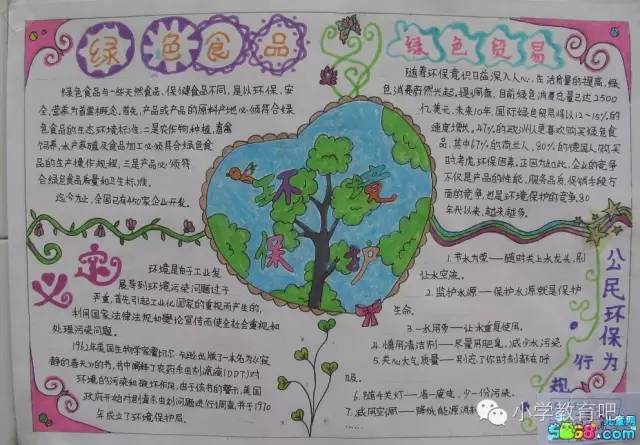 绿色食品
绿色食品与一些天然食品、保健食品不同,是以环保、安
全、营养为首要概念。首先,产品或产品的原料产地必须符合绿
色食品的生态环境标准;二是农作物种植、畜禽
饲养、水产养殖及食品加工必须符合绿色食
品的生产操作规程;三是产品必须符
合绿色食品质量和卫生标准。
迄今为止,全国已有450家企业开发。
绿色贸易
随着环保意识日益深入人心,生活质量的提高,绿
色消费蔚然兴起。据调查,目前绿色消费总量已达2500
亿美元,未来10年,国际绿色贸易将以12~15%的
速度增长。47%的欧洲人更喜欢购买绿色食品,
其中67%的荷兰人、80%的德国人购买
时考虑环保因素。正因为如此,企业的竞争
不仅是产品的性能、服务品质、促销手段方
面的竞争,也是环境保护的竞争。80
年代以来,越来越多。
环境
保护
定义
环境是由于工业发
展导到环境污染问题过于
严重,首先引起工业化国家的重视而产生的,
利用国家法律法规和舆论宣传而使全社会重视和
处理污染问题。
1962年美国生物学家蕾切尔·卡逊出版了一本名为《寂
静的春天》的书,书中阐释了农药杀虫剂滴滴涕(DDT)对
环境的污染和破坏作用,由于该书的警示,美国
政府开始对剧毒杀虫剂问题进行调查,并于1970
年成立了环境保护局。
公民环保为行规
1.节水为荣——随时关上水龙头,别
让水空流。
2.监护水源——保护水源就是保护
生命。
3.一水多用——让水重复使用。
4.慎用清洁剂——尽量用肥皂,减少水污染
5.关心大气质量——别忘了你时刻都在呼
吸。
6.随手关灯——省一度电,少一份污染。
7.减用空调——降低能源消耗
小学教育吧
儿童网
5068.com